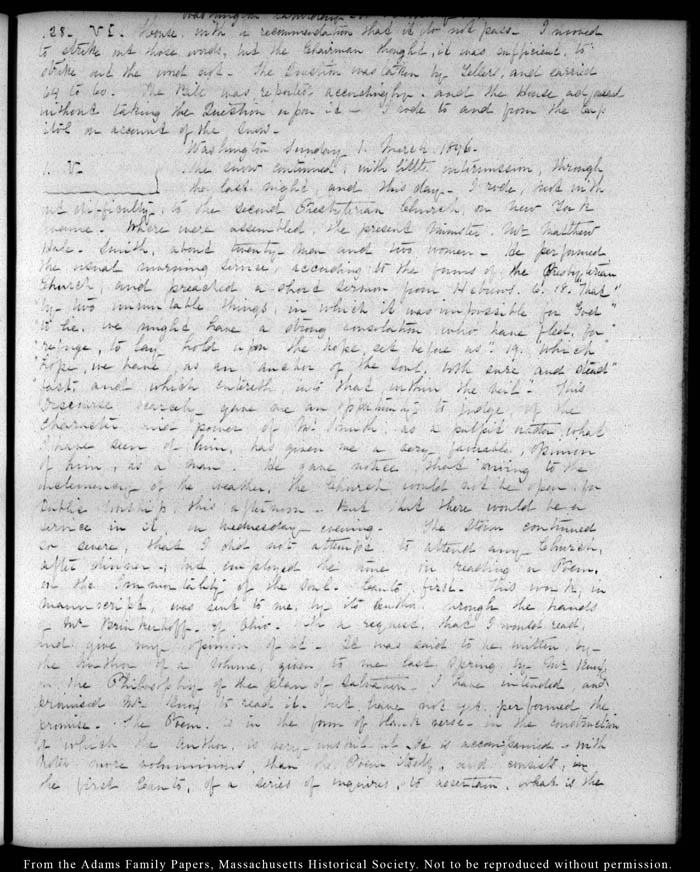 Washington Saturday
28. VI. House, with a recommendation that it do not pass. I moved
to strike out those words, but the Chairman thought, it was sufficient, to
strike out the word not. The Question was taken by Tellers, and carried
to 60. The Bill was reported accordingly, and the House adjourned
without taking the Question upon it — I rode to and from the Cap
itol on account of the snow.
Washington Sunday 1. March 1846.
1. V. The snow continued, with little intermission, through
the last night, and this day. I rode, not with
out difficulty, to the second Presbyterian Church, on New York
Avenue. Where were assembled, the present Minister, Mr Matthew
Hale Smith, about twenty men and two women. He performed
the usual morning service, according to the forms of the Presbyterian
Church, and preached a short sermon from Hebrews. 6. 18. "That
by two immutable things, in which it was impossible for God"
"to lie, we might have a strong consolation, who have fled, for"
"refuge, to lay hold upon the hope, set before us": 19. "Which"
"hope, we have, as an anchor of the soul, both sure and stead"
"fast and which entereth, into that within the veil". This
Discourse scarcely gave me an opportunity to judge, of the
Character and power of Mr Smith as a pulpit orator, what
I have seen of him, has given me a very favorable, opinion
of him, as a man. He gave notice, that owing to the
inclemency of the weather, the Church would not be open, for
public worship, this afternoon. But that there would be a
service in it, on Wednesday evening. The Storm continued
so severe, that I did not attempt to attend any Church,
after dinner, but employed the time, in reading a Poem,
on the Immortality of the Soul. Canto first. This work, in
manuscript, was sent to me, by its author through the hands
of Mr Brinkerhoff, of Ohio. With a request, that I would read,
and give my opinion of it. It was said to be written, by
the Author of a Volume, given to me last Spring, by Mr
on the Philosophy of the plan of Salvation. I have intended, and
promised Mr to read it, but have not yet performed the
promise. The Poem is in the form of blank verse, in the construction
of which the author, is very unskilful. It is accompanied, with
Notes more voluminous, than the Poem itself, and consists, in
the first Canto, of a series of enquiries, to ascertain, what is the
From the Adams Family Papers, Massachusetts Historical Society. Not to be reproduced without permission.